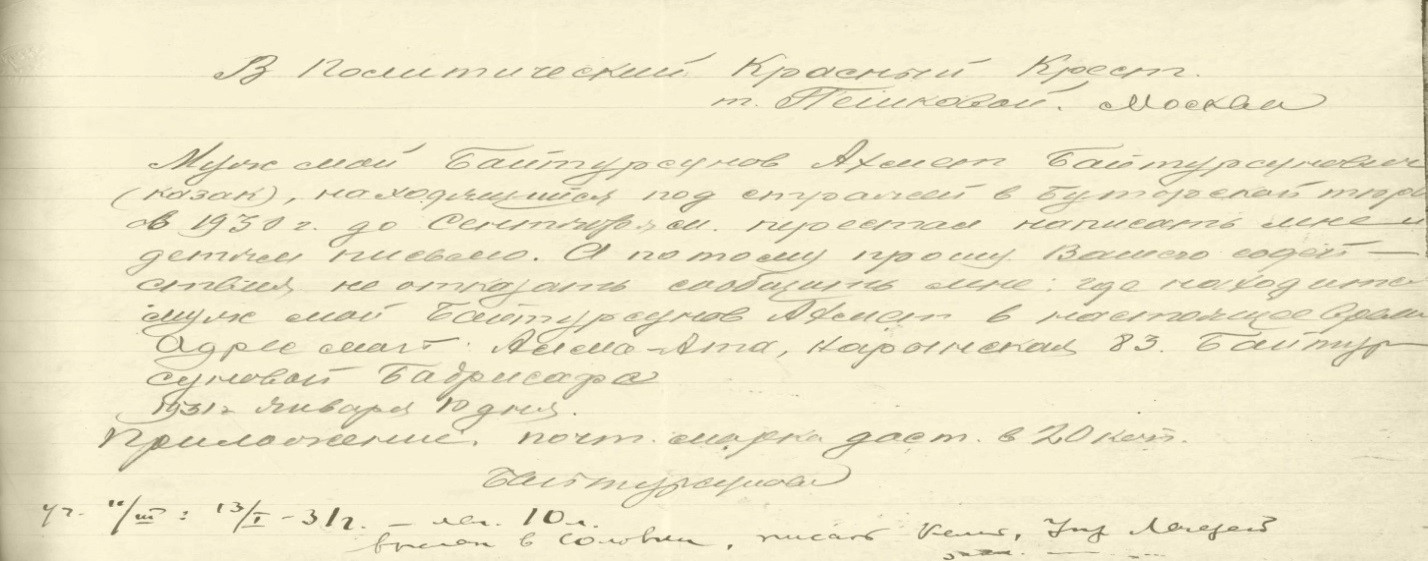 В Политический Красный Крест.
т. Пешковой. Москва
Муж мой Байтурсунов Ахмет Байтурсунович
(казак), находящийся под стражей в Бутырской тюрь
в 1930 г. до Сентября м. перестал написать мне и
детям письмо. А потому прошу Вашего содей—
ствия не отказать сообщить мне: где находится
муж мой Байтурсунов Ахмет в настоящее время
Адрес мой: Алма-Ата, Нарынская 83. Байтур
суновой Бадрисафа
1931 г. Января 10 дня.
Приложение: почт. марка дост. в 20 коп.
Байтурсунова
/III : 13/I – 31 г. – лаг. 10 л.
выслан в Соловки, писать Кемь, Упр Лагерей